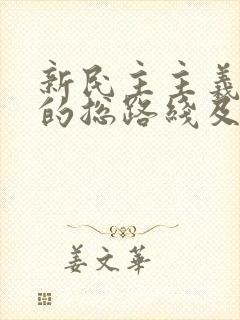 新民主主義
的总路綫及
姜文華